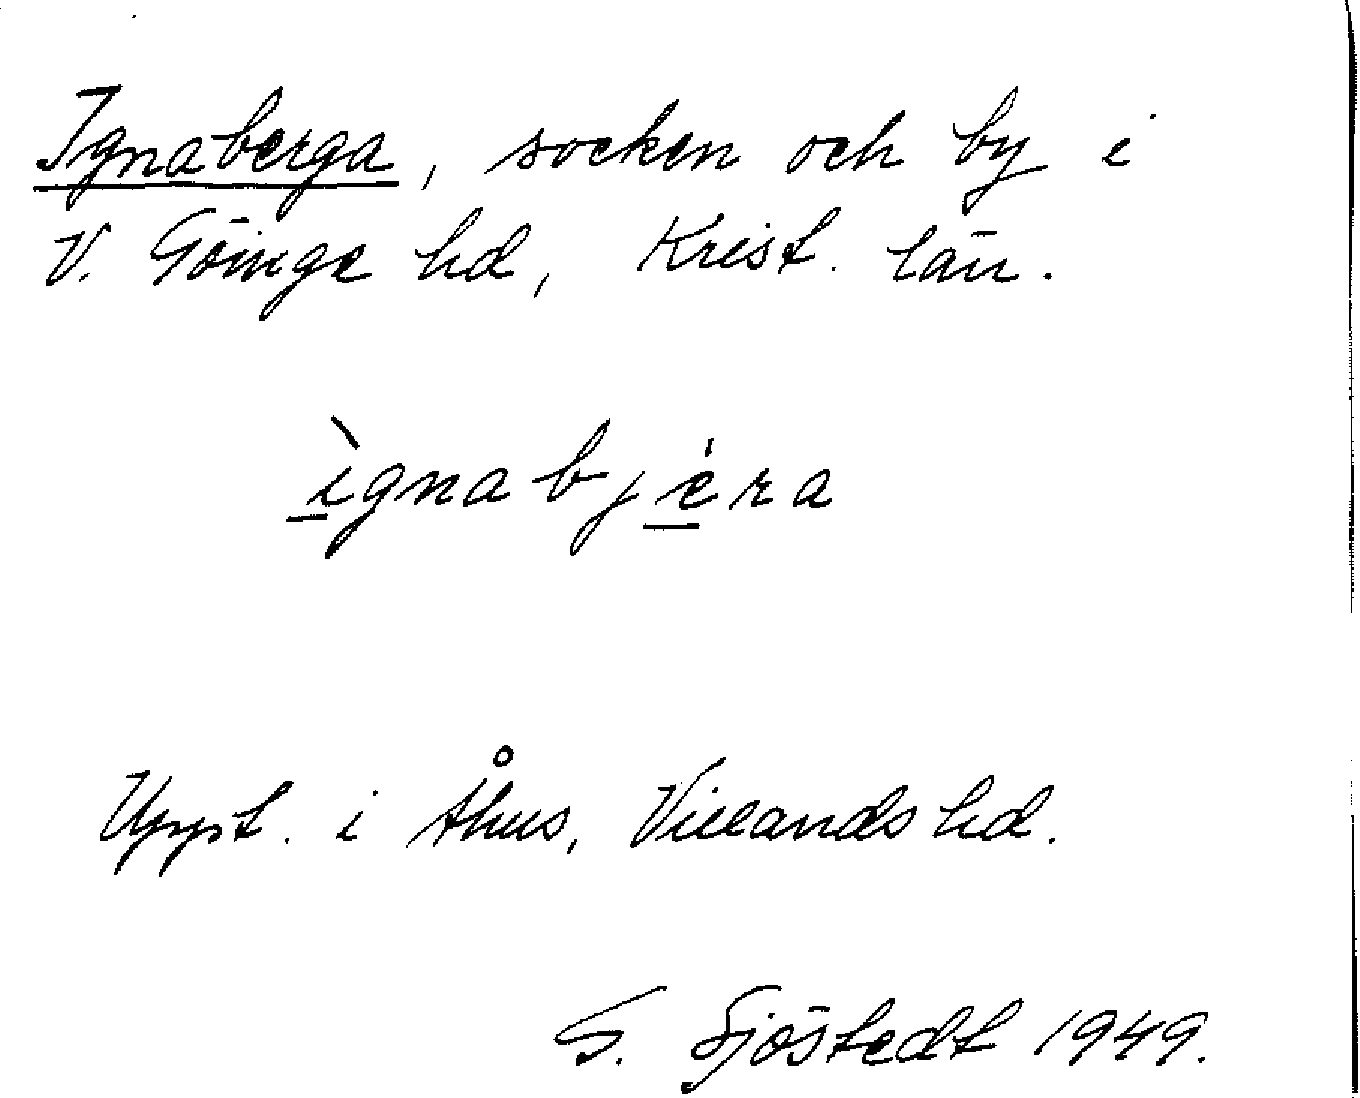 Ignaberga, socken och by i
V. Göinge hd, Krist. län.
ìgnabjéra
Uppt. i Åhus, Villands hd.
G. Sjöstedt 1949.